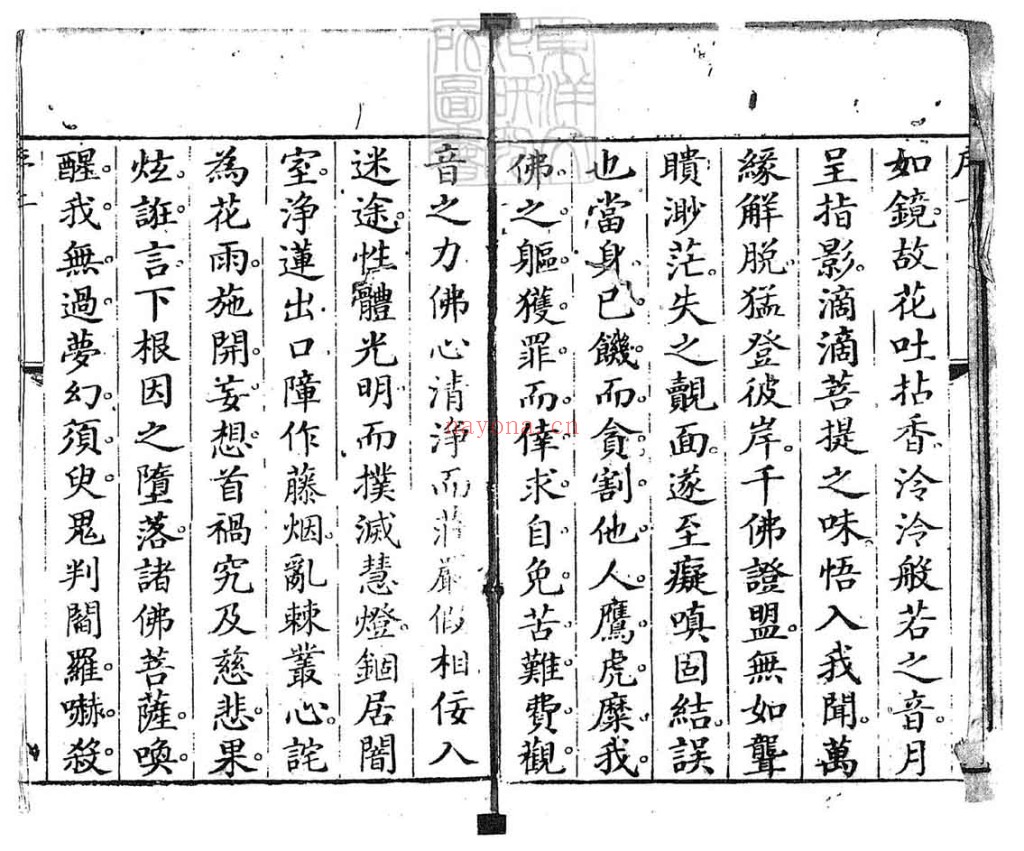 序
如鏡。故花吐拈香。泠泠般若之音。月
呈指影。滴滴菩提之味。悟入我聞。萬
緣解脫。猛登彼岸。千佛證盟。無如聾
瞶渺茫。失之覿面。遂至癡嗔固結。誤
也當身。已饑而貪割他人。鷹虎糜我
佛之軀。獲罪而倖求自免。苦難費觀
音之力。佛心清淨而莊嚴假相佞入
迷途。性體光明。而撲滅慧燈。錮居闇
室。淨蓮出口。障作藤烟。亂棘叢心。詫
為花雨。施開妄想。首禍究及慈悲。果
炫誑言。下根因之墮落。諸佛菩薩。喚
醒我無過夢幻須臾。鬼判閻羅。嚇殺
東洋文
化研究
所圖書
nayona.cn